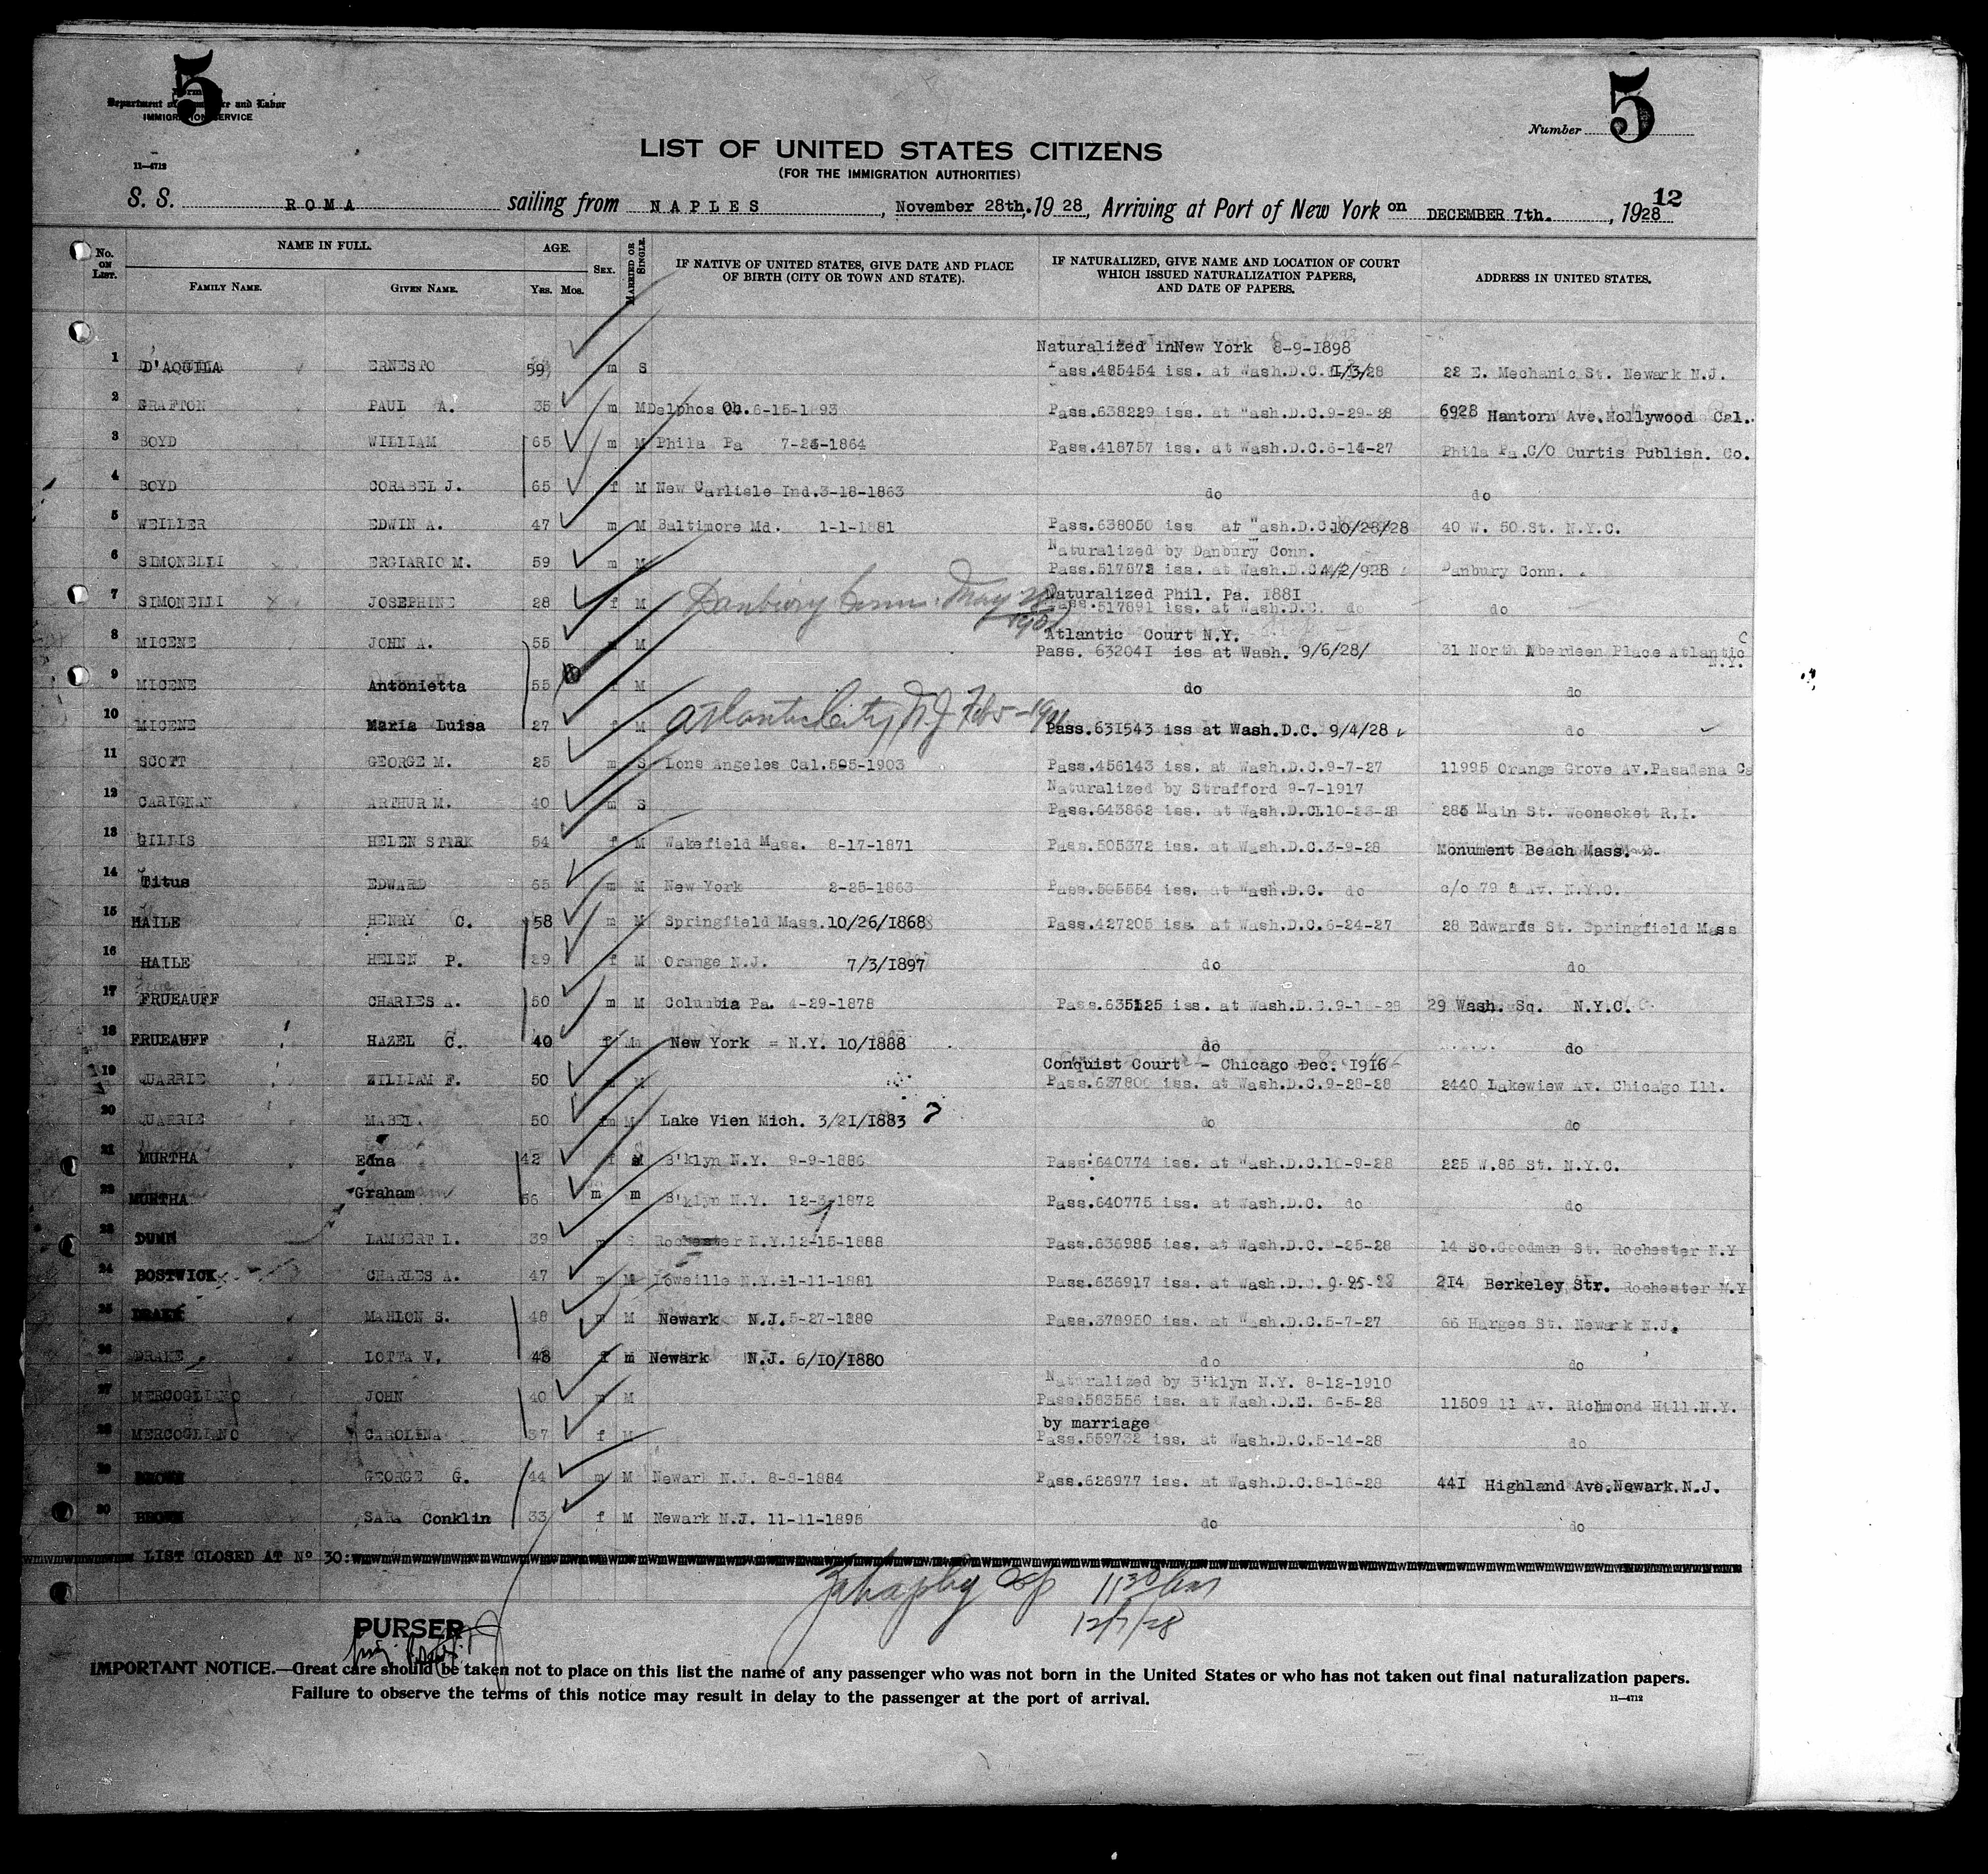 5
5
Department of Commerce and Labor
IMMIGRATION SERVICE
Number
11—4712
LIST OF UNITED STATES CITIZENS
(FOR THE IMMIGRATION AUTHORITIES)
12
S. S. ROMA sailing from NAPLES, November 28th, 1928, Arriving at Port of New York on DECEMBER 7th., 1928
No. ON LIST. NAME IN FULL. AGE. SEX. MARRIED OR SINGLE. IF NATIVE OF UNITED STATES, GIVE DATE AND PLACE OF BIRTH (CITY OR TOWN AND STATE). IF NATURALIZED, GIVE NAME AND LOCATION OF COURT WHICH ISSUED NATURALIZATION PAPERS, AND DATE OF PAPERS. ADDRESS IN UNITED STATES.
FAMILY NAME. GIVEN NAME. YRS. MOS.
Naturalized inNew York 8-9-1898
1 D'AQUILA ERNESTO 59 m S Pass.485454 iss. at Wash.D.C. 1/3/28 22 E. Mechanic St. Newark N.J.
2 GRAFTON PAUL A. 35 m M Delphos Oh. 6-15-1893 Pass.638229 iss. at Wash.D.C.9-29-28 6928 Hantorn Ave.Hollywood Cal.
3 BOYD WILLIAM 65 m M Phila Pa -1864 Pass.418757 iss. at Wash.D.C.6-14-27 Phila Pa.C/O Curtis Publish. Co.
4 BOYD CORABEL J. 65 f M New Carlisle Ind.3-18-1863 do do
5 WEILLER EDWIN A. 47 m M Baltimore Md. 1-1-1881 Pass.638050 iss at Wash.D.C.10/28/28 40 W. 50.St. N.Y.C.
Naturalized by Danbury Conn.
6 SIMONELLI ERCIARIO M. 59 m M Pass.517872 iss. at Wash.D.C 4/2/928 Danbury Conn.
Danbury Conn. May 28
Naturalized Phil. Pa. 1881
7 SIMONELLI JOSEPHINE 28 f M Pass.517891 iss. at Wash.D.C. do do
Atlantic Court N.Y.
8 MICENE JOHN A. 55 m M Pass. 632041 iss at Wash. 9/6/28/ 31 North Aberdeen Place Atlantic C
N.Y.
9 MICENE Antonietta 55 f M do do
Atlantic City, N.J. Feb 5-
10 MICENE Maria Luisa 27 f M Pass.631543 iss at Wash.D.C. 9/4/28 do
11 SCOTT GEORGE M. 25 m S Lons Angeles Cal.505-1903 Pass.456143 iss. at Wash.D.C.9-7-27 11995 Orange Grove Av.Pasadena Ca
Naturalized by Strafford 9-7-1917
12 CARIGNAN ARTHUR M. 40 m S Pass.643862 iss. at Wash.D.C.10-23-28 285 Main St. Woonsocket R.I.
13 GILLIS HELEN STARK 54 f M Wakefield Mass. 8-17-1871 Pass.505372 iss. at Wash.D.C.3-9-28 Monument Beach Mass.
14 Titus EDWARD 65 m M New York 2-25-1863 Pass.505554 iss. at Wash.D.C. do c/o 79 8 Av. N.Y.C.
15 HAILE HENRY C. 58 m M Springfield Mass.10/26/1868 Pass.427205 iss. at Wash.D.C.6-24-27 28 Edwards St. Springfield Mass
16 HAILE HELEN P. 29 f M Orange N.J. 7/3/1897 do do
17 FRUEAUFF CHARLES A. 50 m M Columbia Pa. 4-29-1878 Pass.635125 iss. at Wash.D.C. 29 Wash. Sq. N.Y.C.
18 FRUEAUFF HAZEL C. 40 f M New York = N.Y. 10/1888 do do
Conquist Court - Chicago Dec. 1916
19 QUARRIE WILLIAM F. 50 m M Pass.637800 iss. at Wash.D.C.9-28-28 2440 Lakewiew Av. Chicago Ill.
20 QUARRIE MABEL 50 fm M Lake Vien Mich. 3/21/1883 ? do do
21 MURTHA Edna 42 f M B'klyn N.Y. 9-9-1886 Pass.640774 iss. at Wash.D.C.10-9-28 225 W.86 St. N.Y.C.
22 MURTHA Graham 56 m m B'klyn N.Y. 12-3-1872 Pass.640775 iss. at Wash.D.C. do do
23 DUNN LAMBERT L. 39 m S Rochester N.Y.12-15-1888 Pass.636985 iss. at Wash.D.C.9-25-28 14 So.Goodman St. Rochester N.Y
24 BOSTWICK CHARLES A. 47 m M Loweille N.Y.=1-11-1881 Pass.636917 iss. at Wash.D.C. 9-25-28 214 Berkeley Str. Rochester N.Y
25 DRAKE MAHLON S. 48 m M Newark N.J.5-27-1880 Pass.378950 iss. at Wash.D.C.5-7-27 66 Harges St. Newark N.J.
26 DRAKE LOTTA V. 48 f m Newark N.J. 6/10/1880 do do
Naturalized by B'klyn N.Y. 8-12-1910
27 MERCOGLIANO JOHN 40 m M Pass.583556 iss. at Wash.D.C. 6-5-28 11509 11 Av. Richmond Hill.N.Y.
by marriage
28 MERCOGLIANO CAROLINA 37 f M Pass.559732 iss. at Wash.D.C.5-14-28 do
29 BROWN GEORGE G. 44 m M Newark N.J. 8-8-1884 Pass.626977 iss. at Wash.D.C.8-16-28 441 Highland Ave.Newark.N.J.
30 BROWN SARA Conklin 33 f M Newark N.J. 11-11-1895 do do
LIST CLOSED AT Nº 30:
11 30 am
12/7/28
PURSER
IMPORTANT NOTICE.—Great care should be taken not to place on this list the name of any passenger who was not born in the United States or who has not taken out final naturalization papers.
Failure to observe the terms of this notice may result in delay to the passenger at the port of arrival.
11—4712